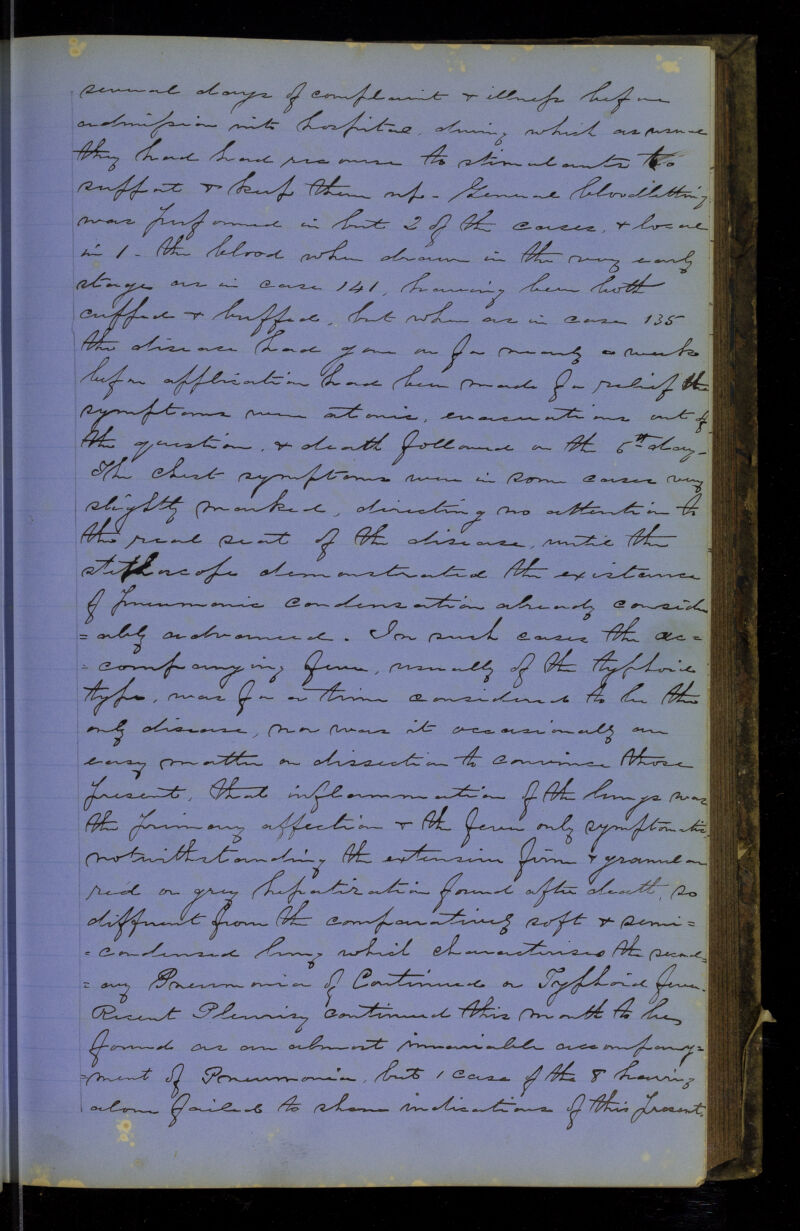 several days of complaint & illness before
admission into hospital, during which as usual
they had had recourse to stimulants to
support & keep them up - General bloodletting
was performed in but 2 of the cases, & local
in 1 - the blood when drawn in the very early
stage as in case 141, having been both
cupped & buffed, but when as in case 135
the disease had gone on for nearly a week
before application had been made for relief the
symptoms were atonic, evacuations out of
the question, & death followed on the 6th day -
The chest symptoms were in some cases very
slightly marked, directing no attention to
the real seat of the disease, until the
stethoscope demonstrated the existence
of pneumonic condensation already consider
=ably advanced. In such cases the ac=
=companying fever, usually of the typhoid
type, was for a time considered to be the
only disease, nor was it occasionally an
easy matter on dissection to convince those
present, that inflammation of the lungs was
the primary affection & the fever only symptomatic,
notwithstanding the extensive firm & granular
red or grey hepatization found after death, so
different from the comparatively soft & semi=
=condensed lung which characterises the second=
=ary Pneumonia of Continued or Typhoid fever.
Recent Pleurisy continued this month to be
found as an almost invariable accompany=
=ment of Pneumonia, but 1 case of the 8 having
alone failed to show indications of this present.